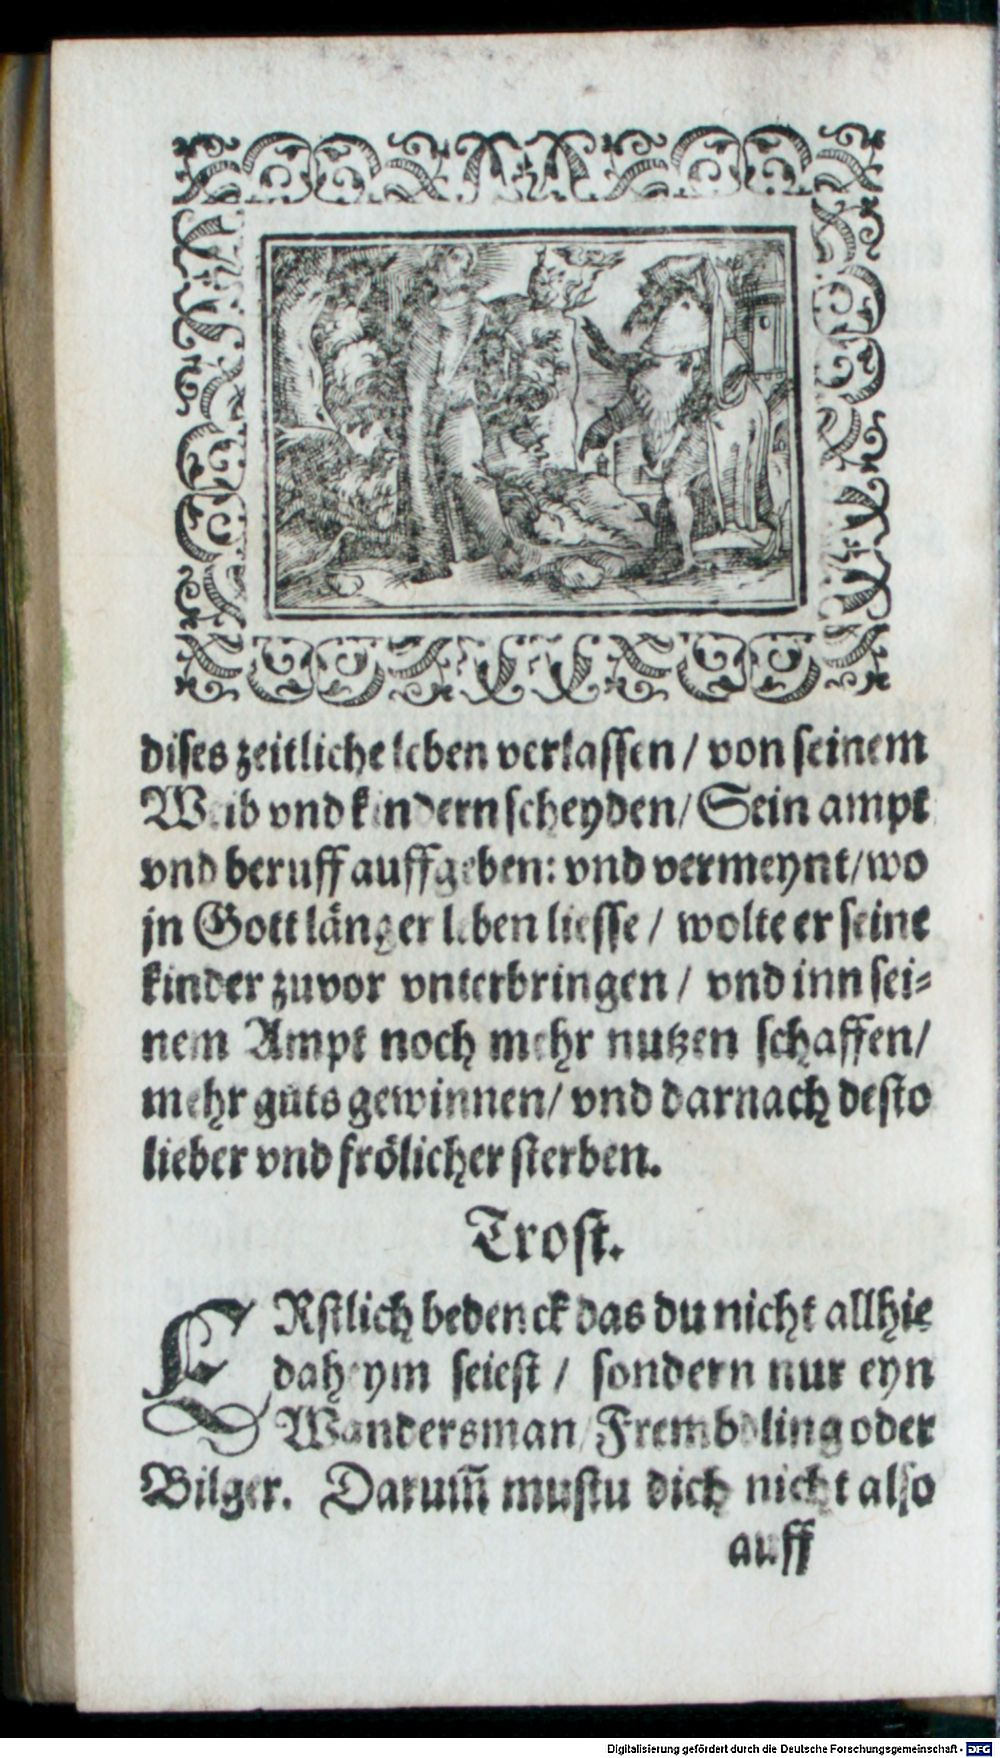 dises zeitliche leben verlassen / von seinem
Weib vnd kindern scheyden / Sein ampt
vnd beruff auffgeben: vnd vermeynt / wo
jn Gott länger leben liesse / wolte er seine
kinder zuvor vnterbringen / vnd inn sei=
nem Ampt noch mehr nutzen schaffen /
mehr guts gewinnen / vnd darnach desto
lieber vnd frölicher sterben.
Trost.
ERstlich bedenck das du nicht allhie
daheym seiest / sondern nur eyn
Wandersman / Frembdling oder
Bilger. Darum̃ mustu dich nicht also
auff
Digitalisierung gefördert durch die Deutsche Forschungsgemeinschaft - DFG